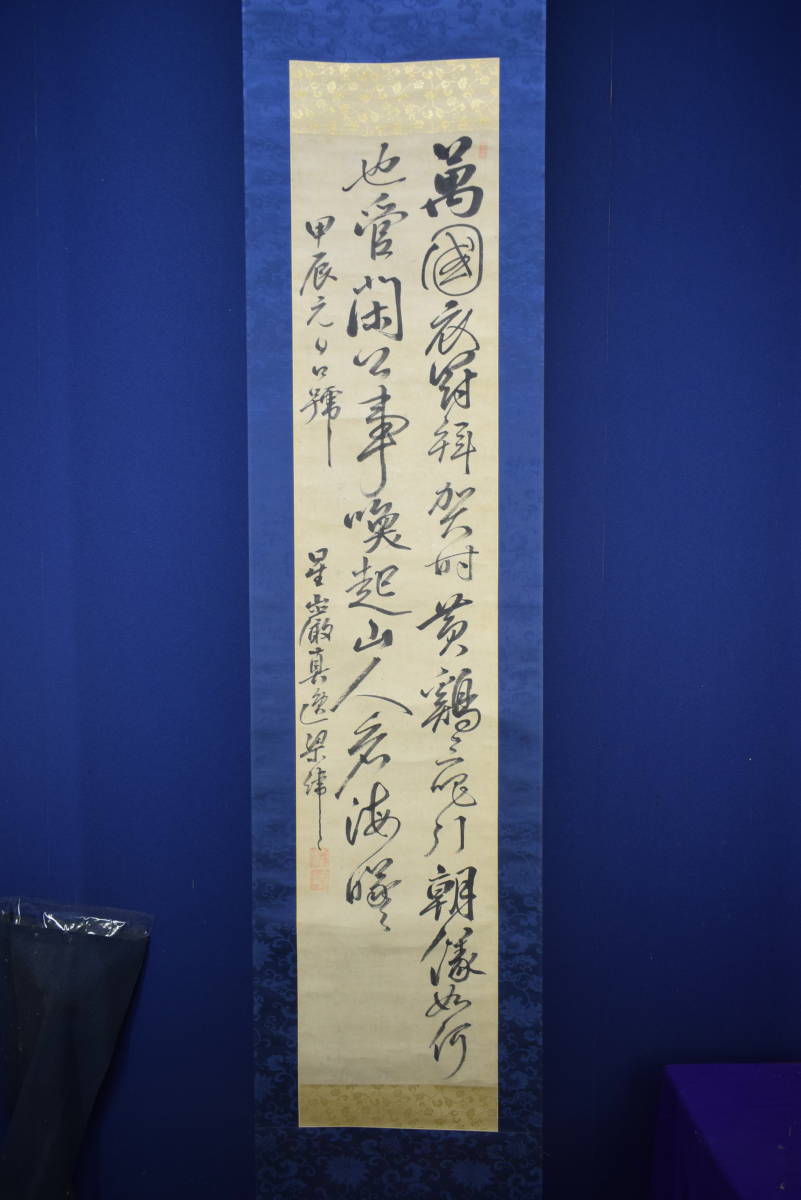 萬國衣冠拜賀時黄鷄三喔引朝儀如何
也管閑公事喚起山人看海曦
甲辰元日口號
星巖真逸梁緯